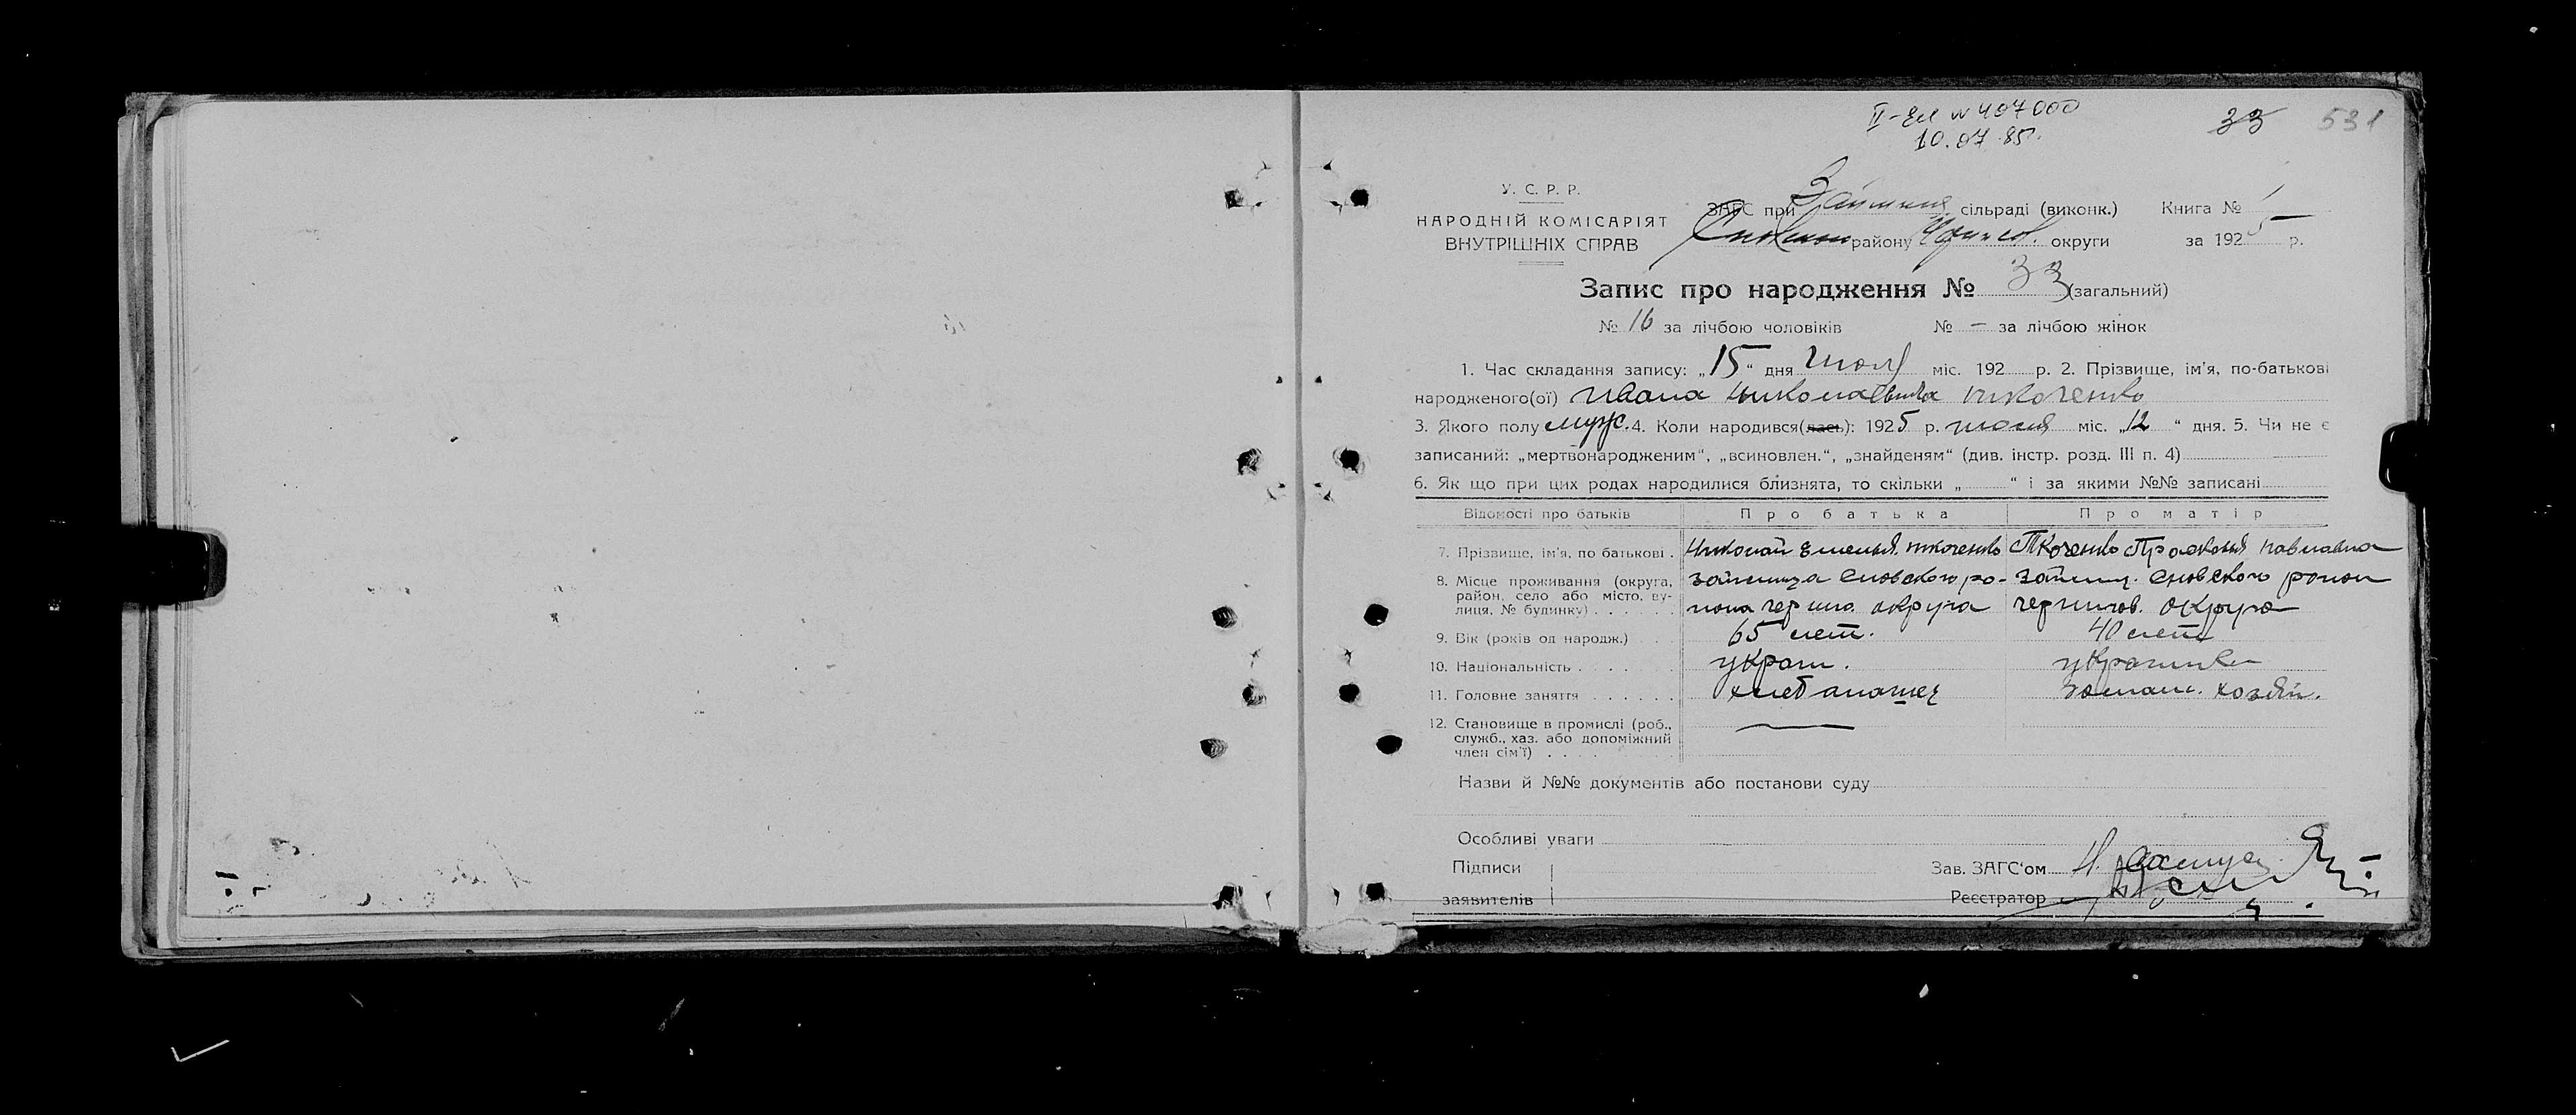 II-ЕЛ № 407000
10.07.85.
33 531
У. С. Р. Р.
НАРОДНІЙ КОМІСАРІЯТ
ВНУТРІШНІХ СПРАВ
ЗАГС при сільраді (виконк.) Книга № 1
району округи за 1925 р.
Запис про народження № 33 (загальний)
№ 16 за лічбою чоловіків № — за лічбою жінок
1. Час складання запису: „15“ дня июля міс. 192 р. 2. Прізвище, ім'я, по-батькові
народженого(ої) Ивана Николаевича Ткоченко
3. Якого полу муж. 4. Коли народився(лась): 1925 р. міс. „12“ дня. 5. Чи не є
записаний: „мертвонародженим“, „всиновлен.“, „знайденям“ (див. інстр. розд. III п. 4)
6. Як що при цих родах народилися близнята, то скільки „ “ і за якими №№ записані
Відомості про батьків Про батька Про матір
7. Прізвище, ім'я, по батькові . Николай Емельян. Ткоченко Ткоченко Просковья Павловна
8. Місце проживання (округа, район, село або місто, вулиця, № будинку) . . . . . Займища Сновского района округа Займищ. Сновского район чернигов. округа
9. Вік (років од народж.) . . . 65 лет. 40 лет
10. Національність . . . . . . украин. украинка
11. Головне заняття . . . . . . хлебапашец хозяй.
12. Становище в промислі (роб., служб., хаз. або допоміжний член сім'ї) . . . . . . . —
Назви й №№ документів або постанови суду
Особливі уваги
Підписи Зав. ЗАГС'ом
заявителів Реєстратор